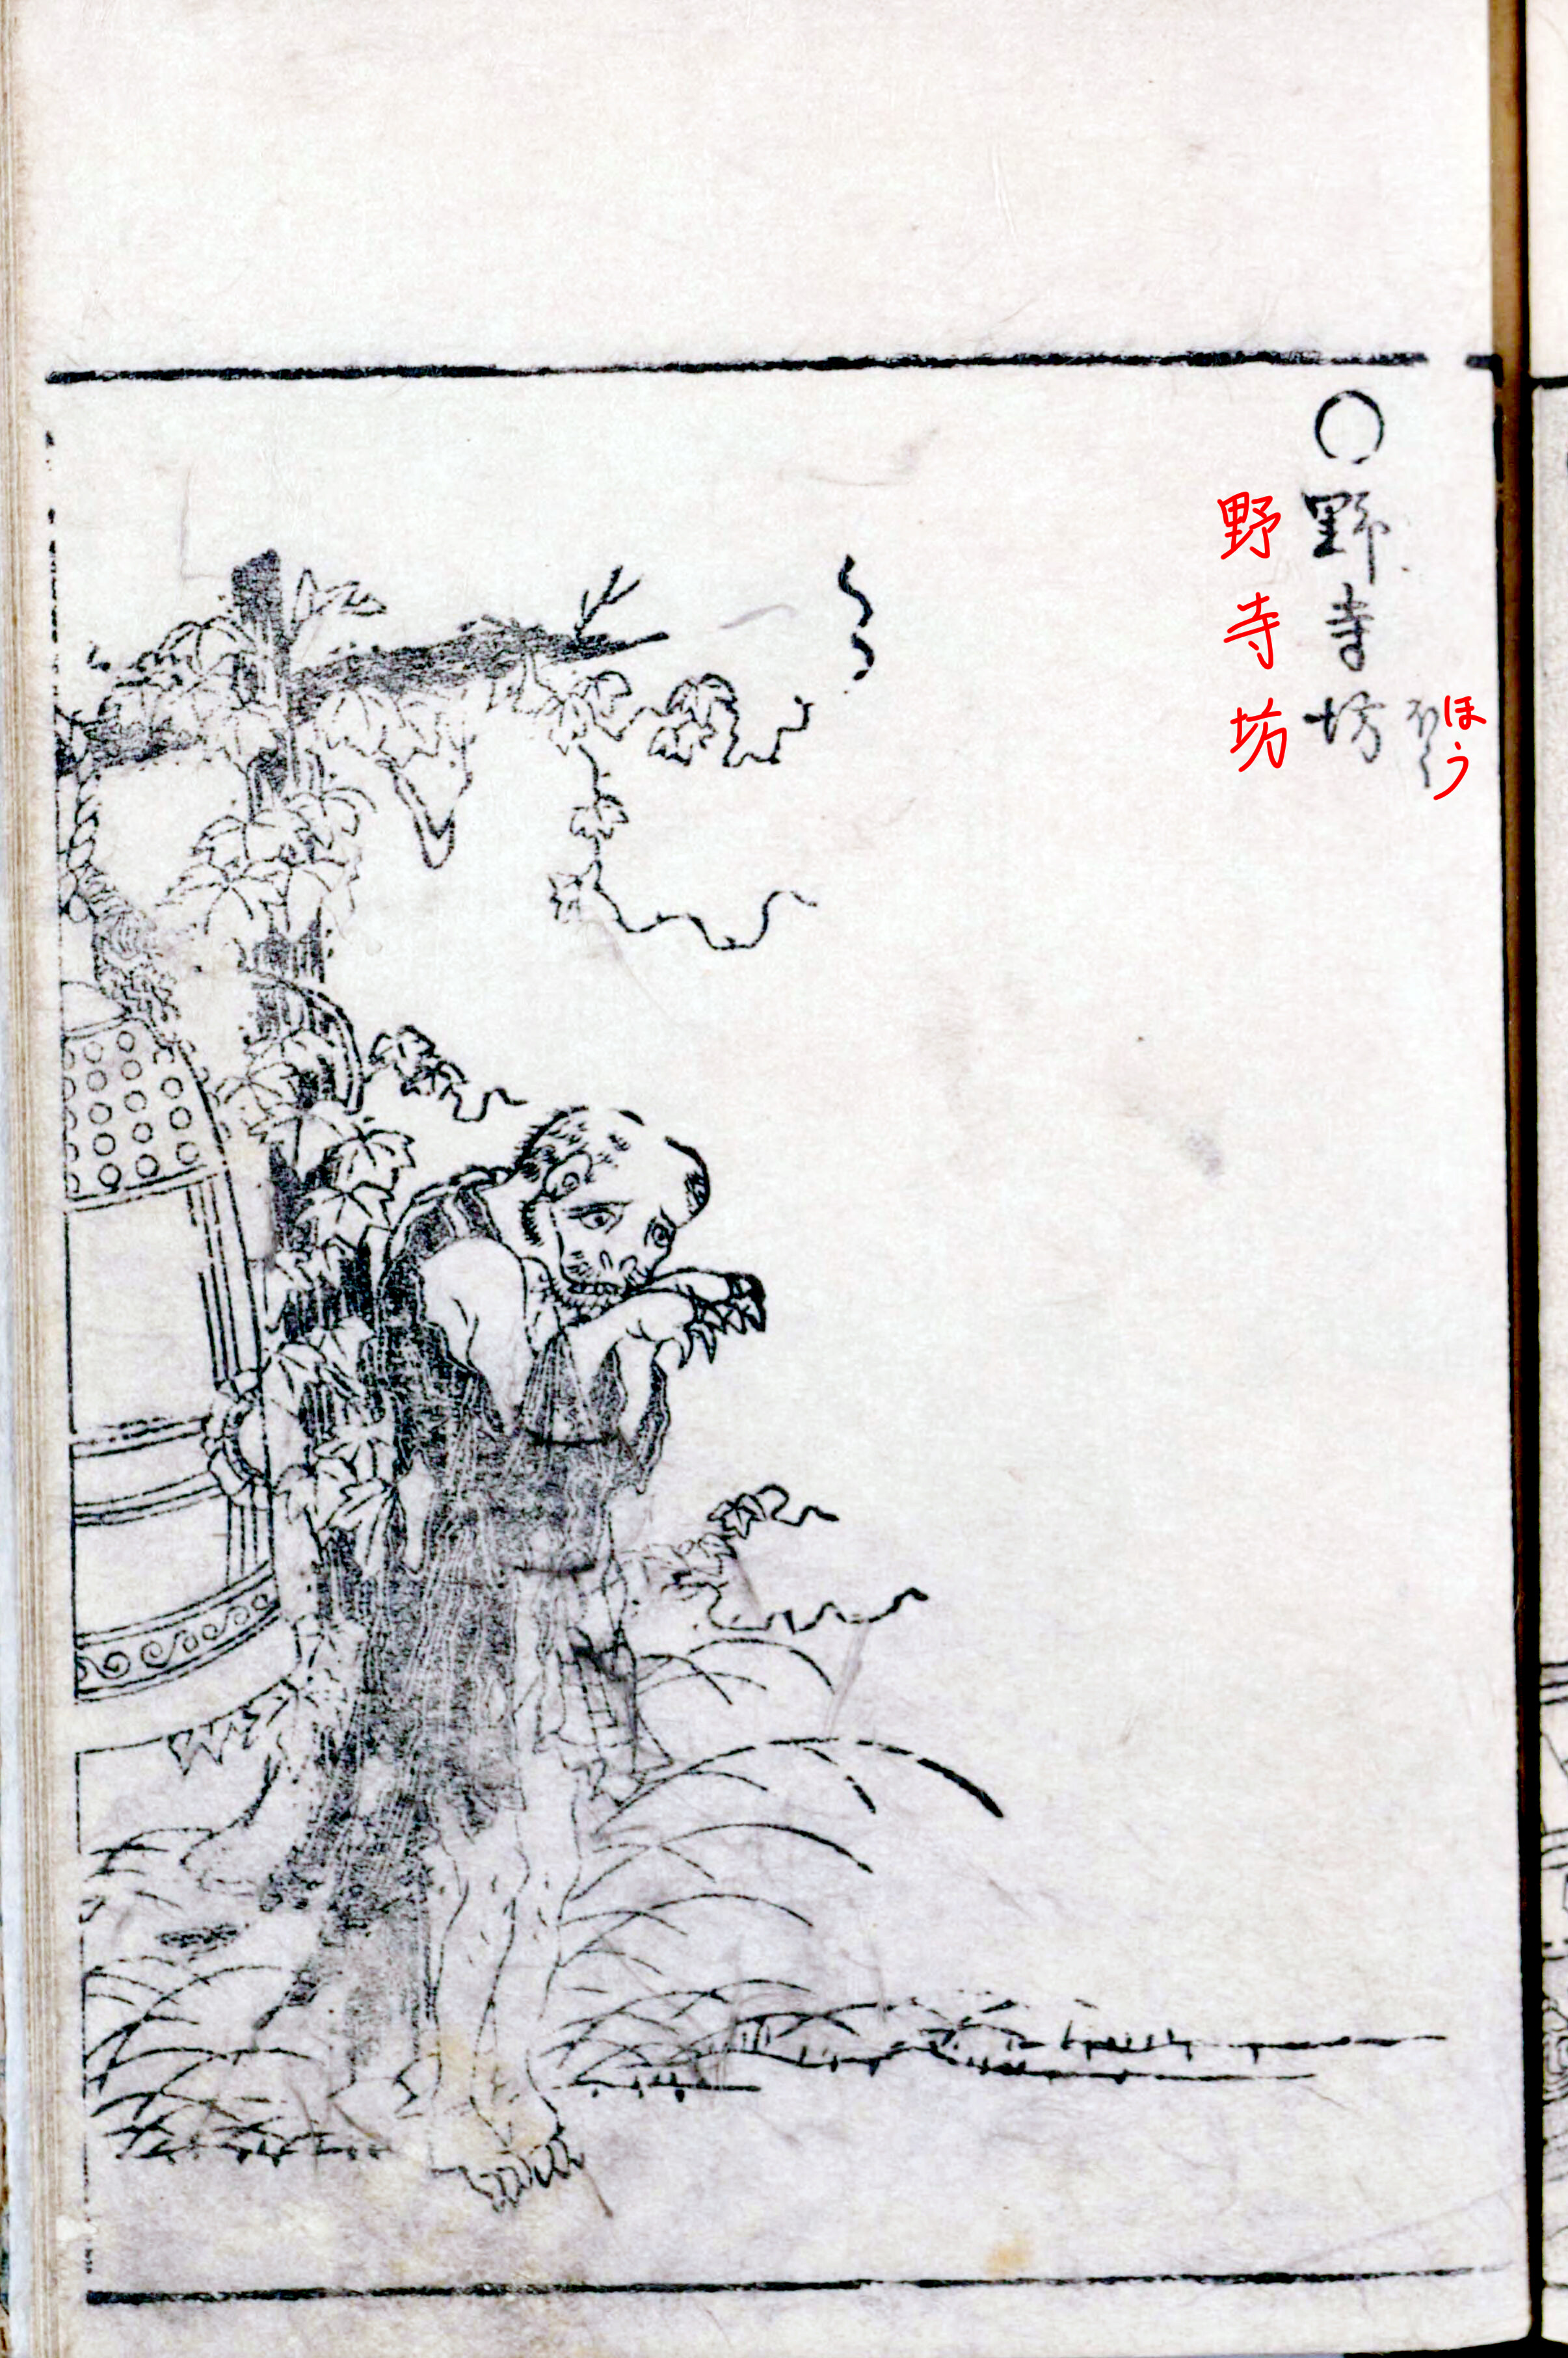 ○野寺坊
ほう
野寺坊
ほう